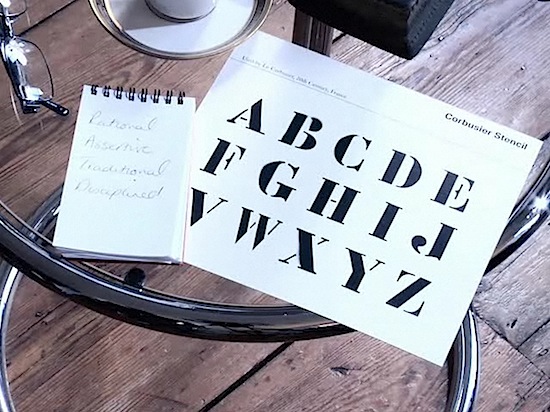 Rational
Assertive
Traditional
Disciplined
Used by Le Corbusier, 20th Century, France
Corbusier Stencil
ABCDE
FGHIJ
VWXYZ